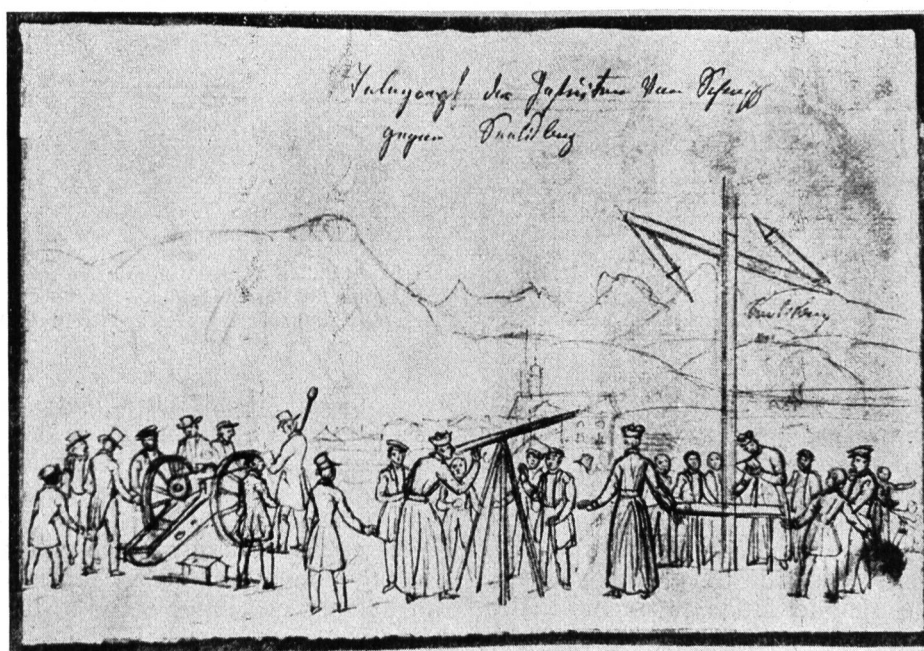 Telegraph der Jesuiten von Schwyz
gegen Seelisberg
Seelisberg